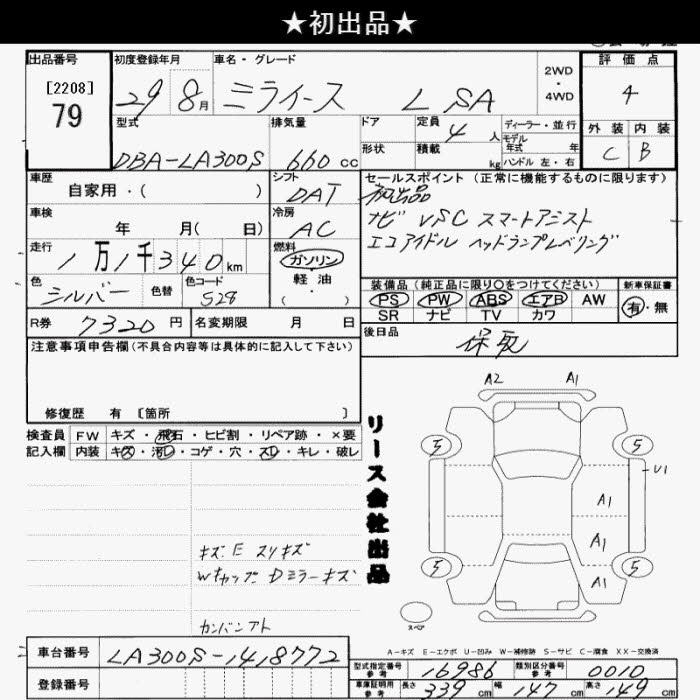 ★初出品★
出品番号 初度登録年月 車名・グレード 2WD・4WD 評価点
[2208] 79 29 8月 ミライース L SA 4
型式 排気量 ドア 定員 4人 ディーラー・並行 外装 内装
形状 積載 kg モデル年式 年 ハンドル 左・右
DBA-LA300S 660cc C B
車歴 自家用・( ) シフト DAT セールスポイント (正常に機能するものに限ります)
初出品
車検 年 月( 日) 冷房 AC ナビ VSC スマートアシスト
エコアイドル ヘッドランプレベリング
走行 1万1千340km 燃料 ガソリン 軽油 ・( )
色 シルバー 色替 色コード S28
装備品 (純正品に限り○をつけてください) 新車保証書
PS PW ABS エアB AW 有・無
SR ナビ TV カワ
R券 7320円 名変期限 月 日 後日品 保取
注意事項申告欄(不具合内容等は具体的に記入して下さい)
修復歴 有 [箇所 ]
A2 A1
検査員 FW キズ・飛石・ヒビ割・リペア跡・×要
記入欄 内装 キズ・汚レ・コゲ・穴・スレ・キレ・破レ
リース会社出品
5 5
U1
A1
A1
5 A1 5
キズ E スリキズ
Wキャップ Dミラーキズ
カンバンアト
スペア
A-キズ E-エクボ U-凹み W-補修跡 S-サビ C-腐食 XX-交換済
車台番号 LA300S-1418772
型式指定番号 参考 16986 類別区分番号 参考 0010
登録番号 車庫証明用 参考 長さ 339cm 幅 147cm 高さ 149cm